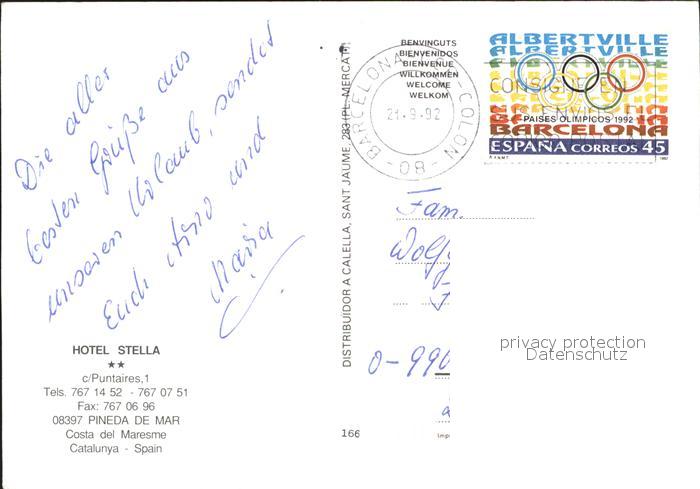 Die aller
besten Grüße aus
unseren Urlaub, sendet
Euch Arno und
Maria
HOTEL STELLA
★★
c/Puntaires,1
Tels. 767 14 52 - 767 07 51
Fax: 767 06 96
08397 PINEDA DE MAR
Costa del Maresme
Catalunya - Spain
DISTRIBUÏDOR A CALELLA, SANT JAUME, 283 (PL. MERCAT)
166
BENVINGUTS
BIENVENIDOS
BIENVENUE
WILLKOMMEN
WELCOME
WELKOM
BARCELONA COLON
21.9.92
- 08 -
BARCELONA
ALBERTVILLE
ALBERTVILLE
CONSIGNE EN
SUS ENVIOS
PAISES OLIMPICOS 1992
BARCELONA
ESPAÑA CORREOS 45
1992
Fam.
Wolfg
0-990
privacy protection
Datenschutz
Imp